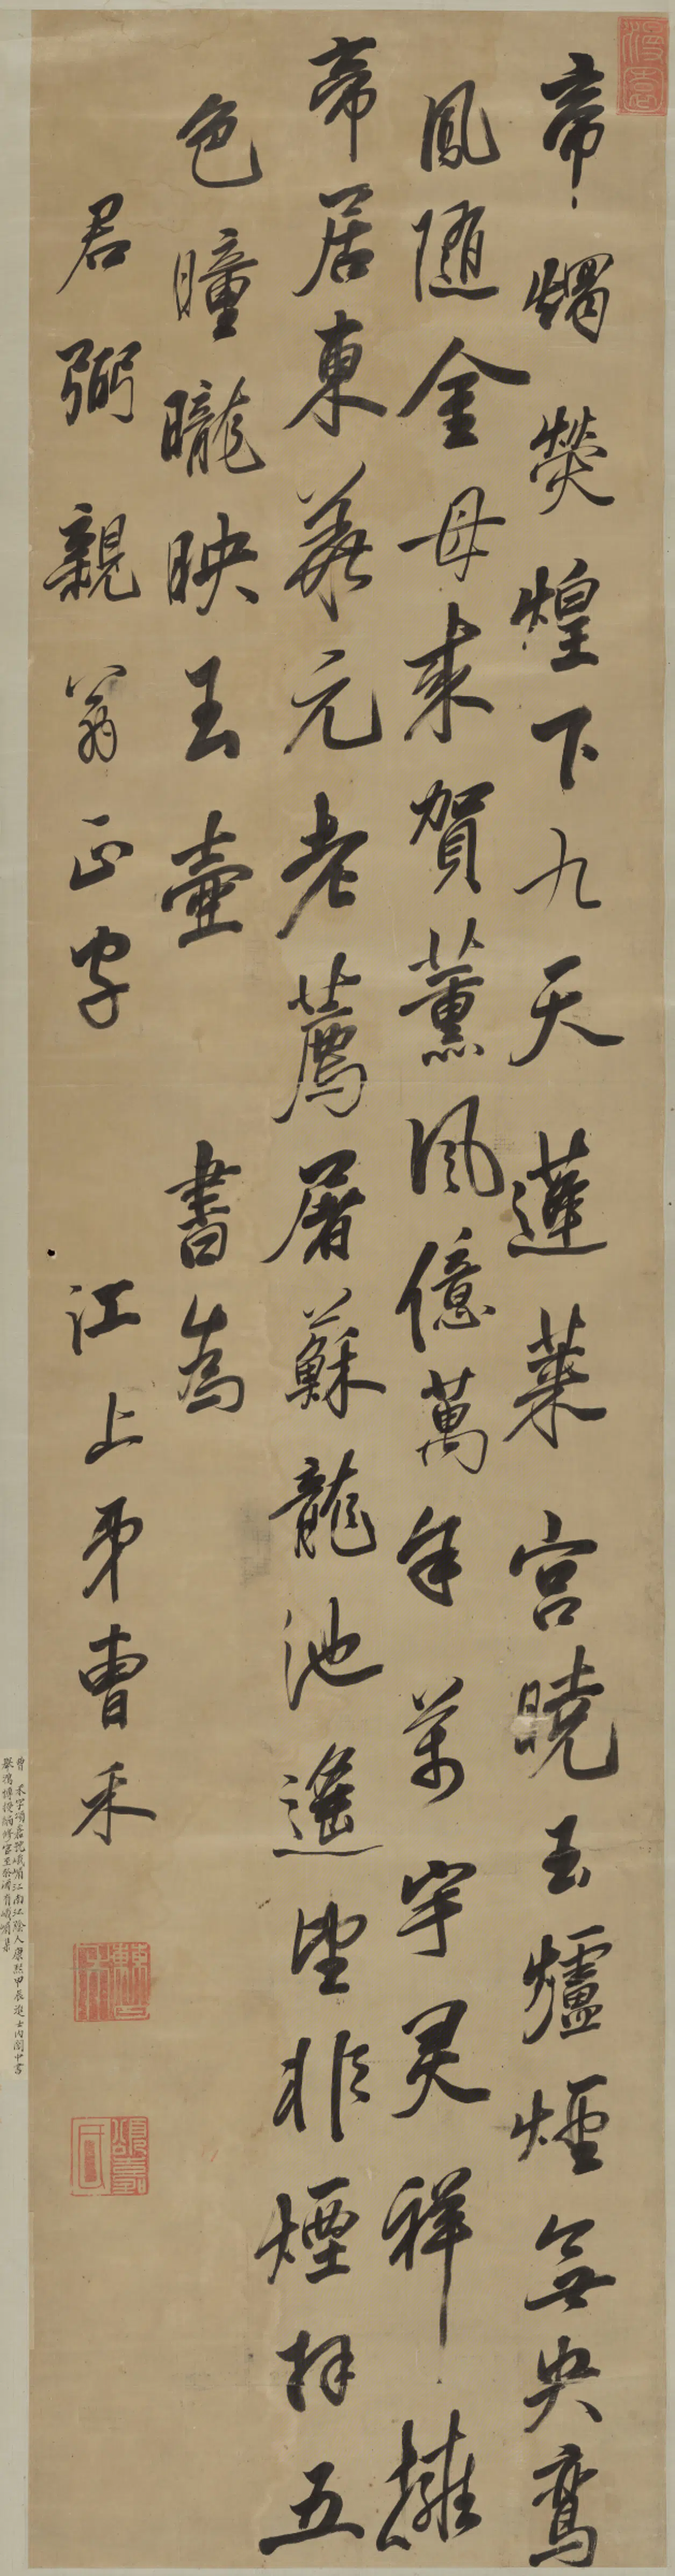 帝燭熒煌下九天蓬萊宮曉玉爐煙無央鸞
鳳隨金母來賀薰風億萬年萬宇灵祥擁
帝居東華元老薦屠蘇龍池遙望非煙拜五
色曈曨映玉壺 書為
君弼親翁正字 江上弟曹禾
曹禾字頌嘉號峨嵋江南江陰人康熙甲辰進士內閣中書
舉鴻博授編修官至祭酒有峨嵋集